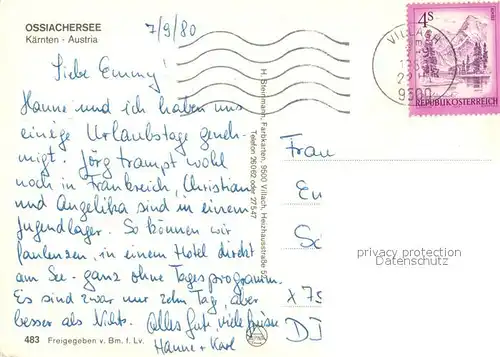 OSSIACHERSEE
Kärnten · Austria
7/9/80
Liebe Emmy!
Hanne und ich haben uns
einige Urlaubstage geneh-
migt. Jörg trampt wohl
noch in Frankreich, Christiane
und Angelika sind in einem
Jugendlager. So können wir
faulenzen, in einem Hotel direkt
am See - ganz ohne Tagesprogramm.
Es sind zwar nur zehn Tag, aber
besser als Nichts. Alles Gute, viele Grüsse
Hanne + Karl
483 Freigegeben v. Bm. f. Lv.
H. Steinmann, Farbkarten, 9500 Villach, Heizhausstraße 52
Telefon 26062 oder 27547
4 S
REPUBLIK ÖSTERREICH
VILLACH
9500
Frau
privacy protection
Datenschutz